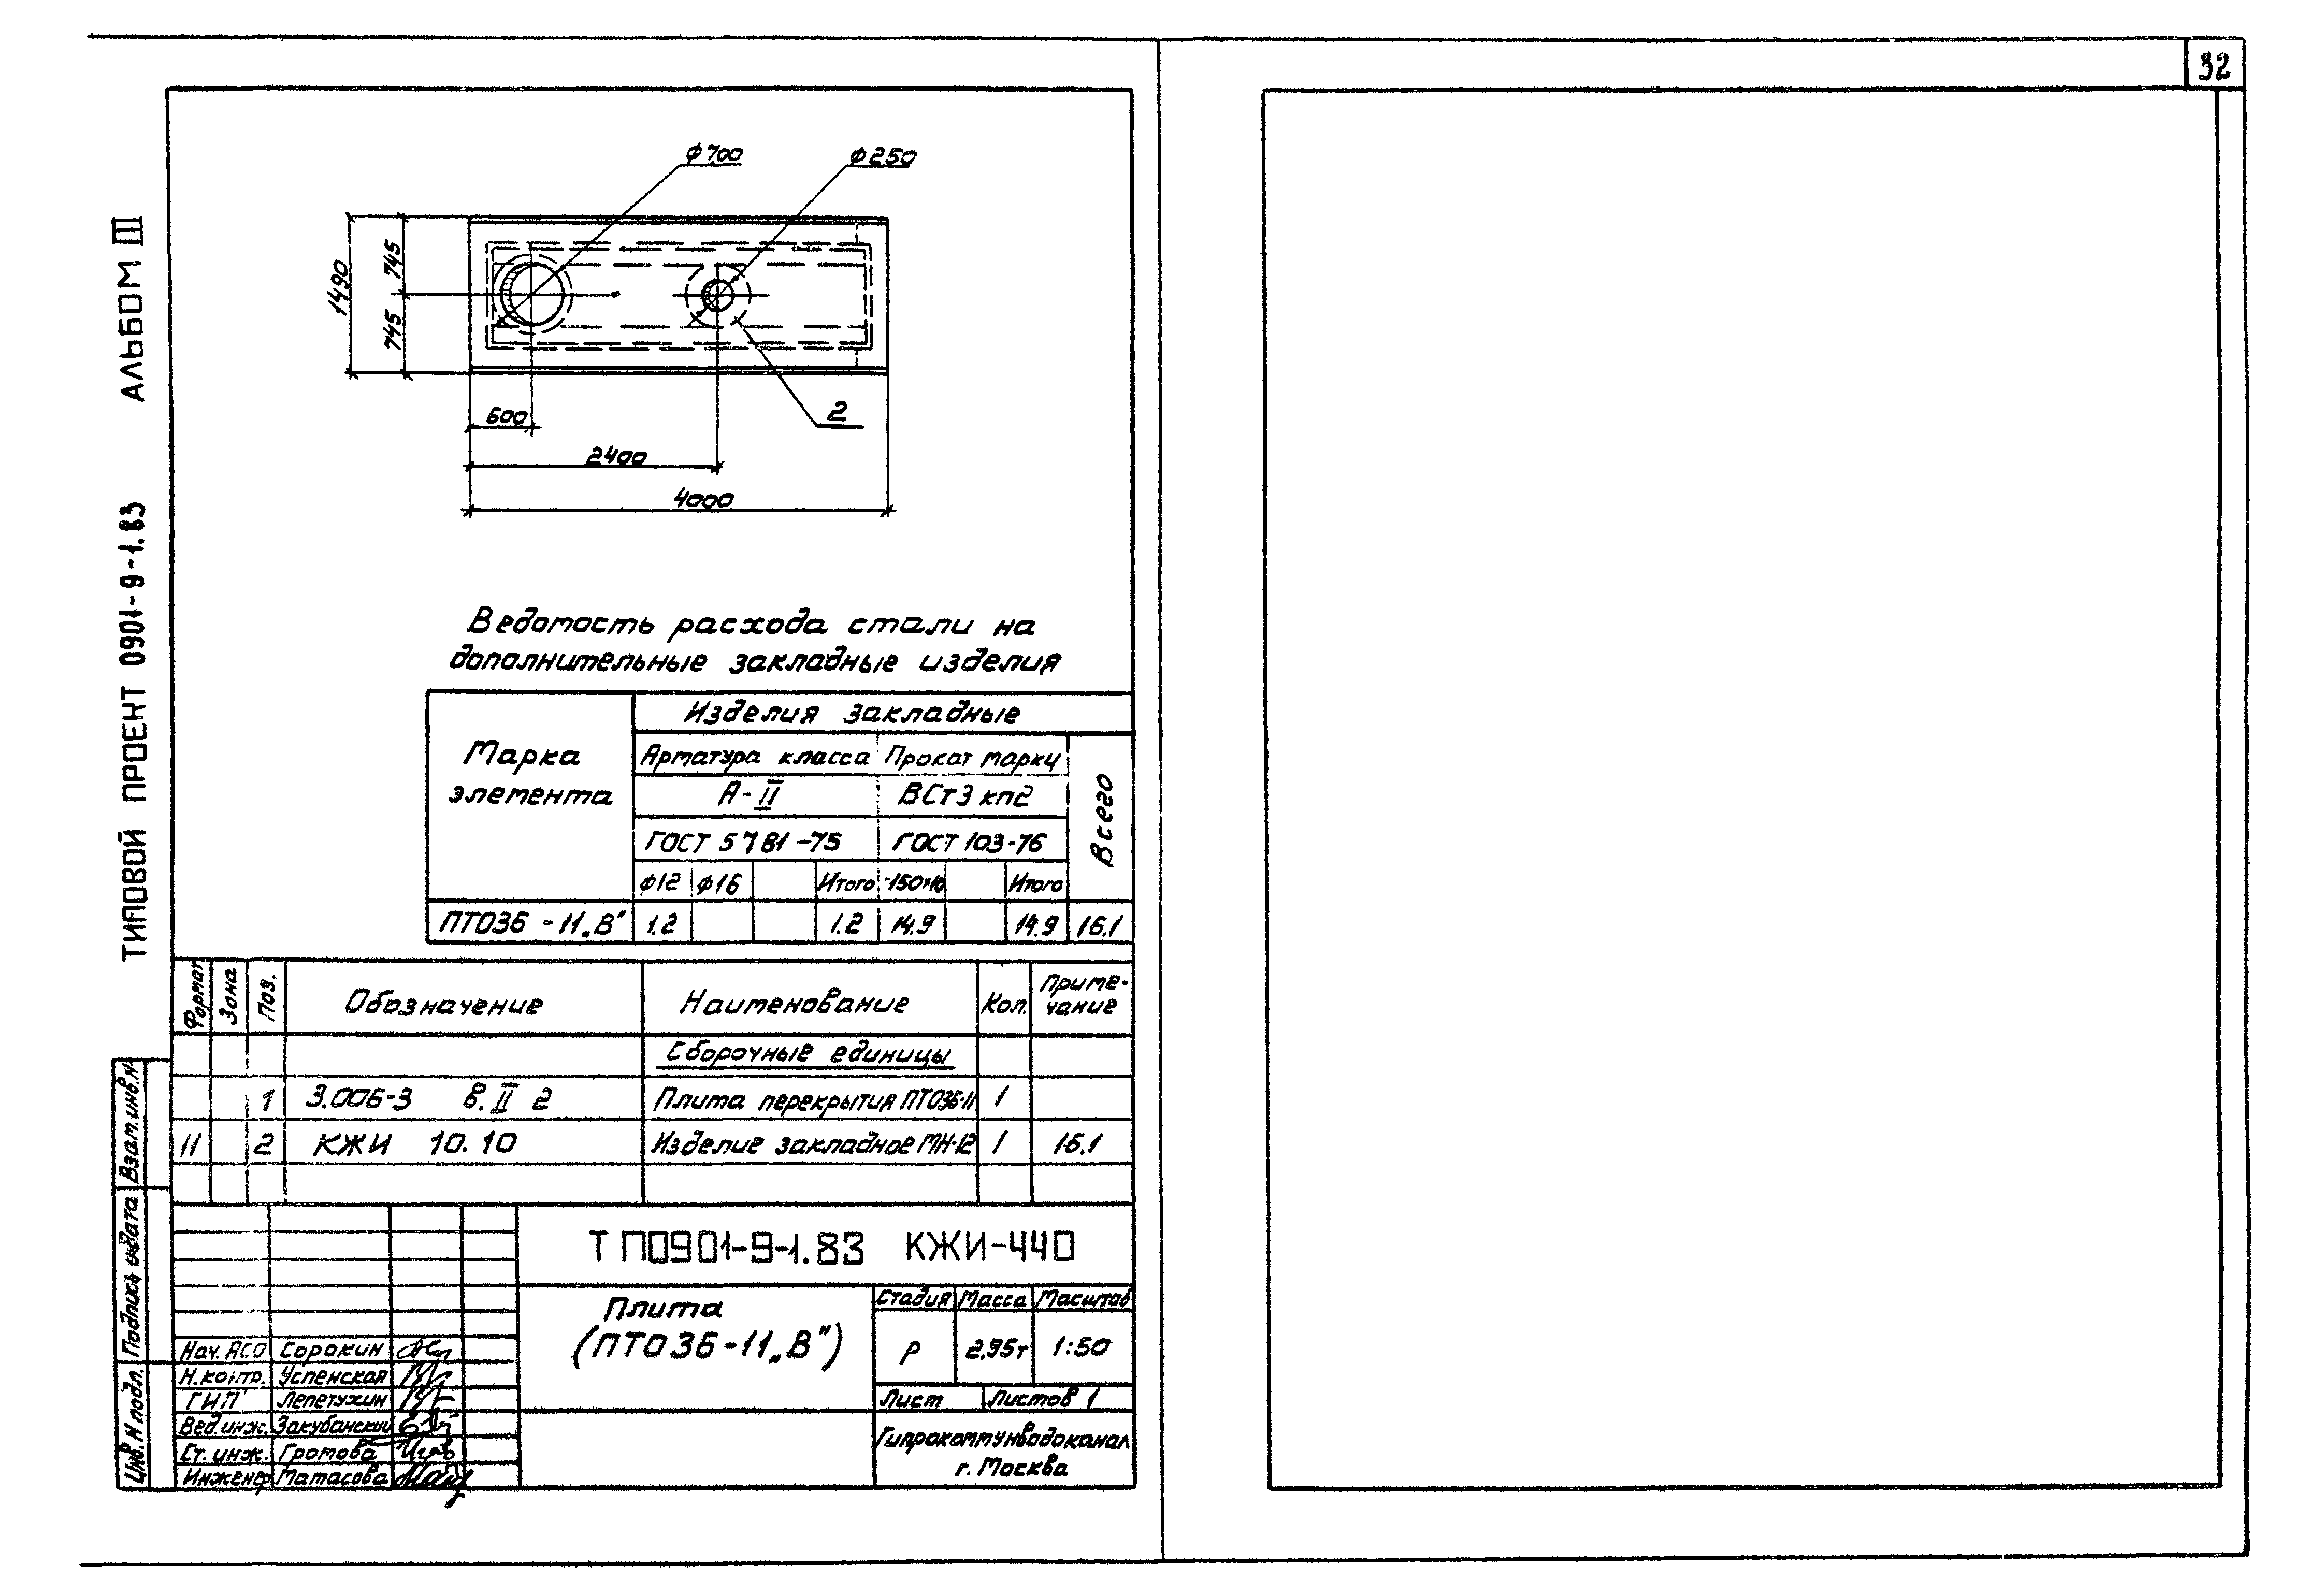 32
АЛЬБОМ III
ТИПОВОЙ ПРОЕКТ 0901-9-1.83
ф700
ф250
1490
745
745
600
2
2400
4000
Ведомость расхода стали на
дополнительные закладные изделия
Марка элемента
Изделия закладные
Арматура класса Прокат марки
Всего
А-II ВСт3 кп2
ГОСТ 5781-75 ГОСТ 103-76
ф12 ф16 Итого -150×10 Итого
ПТ036-11„В" 1.2 1.2 14.9 14.9 16.1
Формат Зона Поз. Обозначение Наименование Кол. Приме-чание
Сборочные единицы
1 3.006-3 в.II 2 Плита перекрытия ПТ036-11 1
11 2 КЖИ 10.10 Изделие закладное МН-12 1 16.1
Взам.инв.N
Подпись и дата
Инв.N подл.
ТП0901-9-1.83 КЖИ-440
Плита
(ПТ036-11„В")
Стадия Масса Масштаб
Р 2.95т 1:50
Лист Листов 1
Гипрокоммунводоканал
г. Москва
Нач. АСО Сорокин
Н.контр. Успенская
ГИП Лепетухин
Вед.инж. Закубанский
Ст. инж. Громова
Инженер Матасова